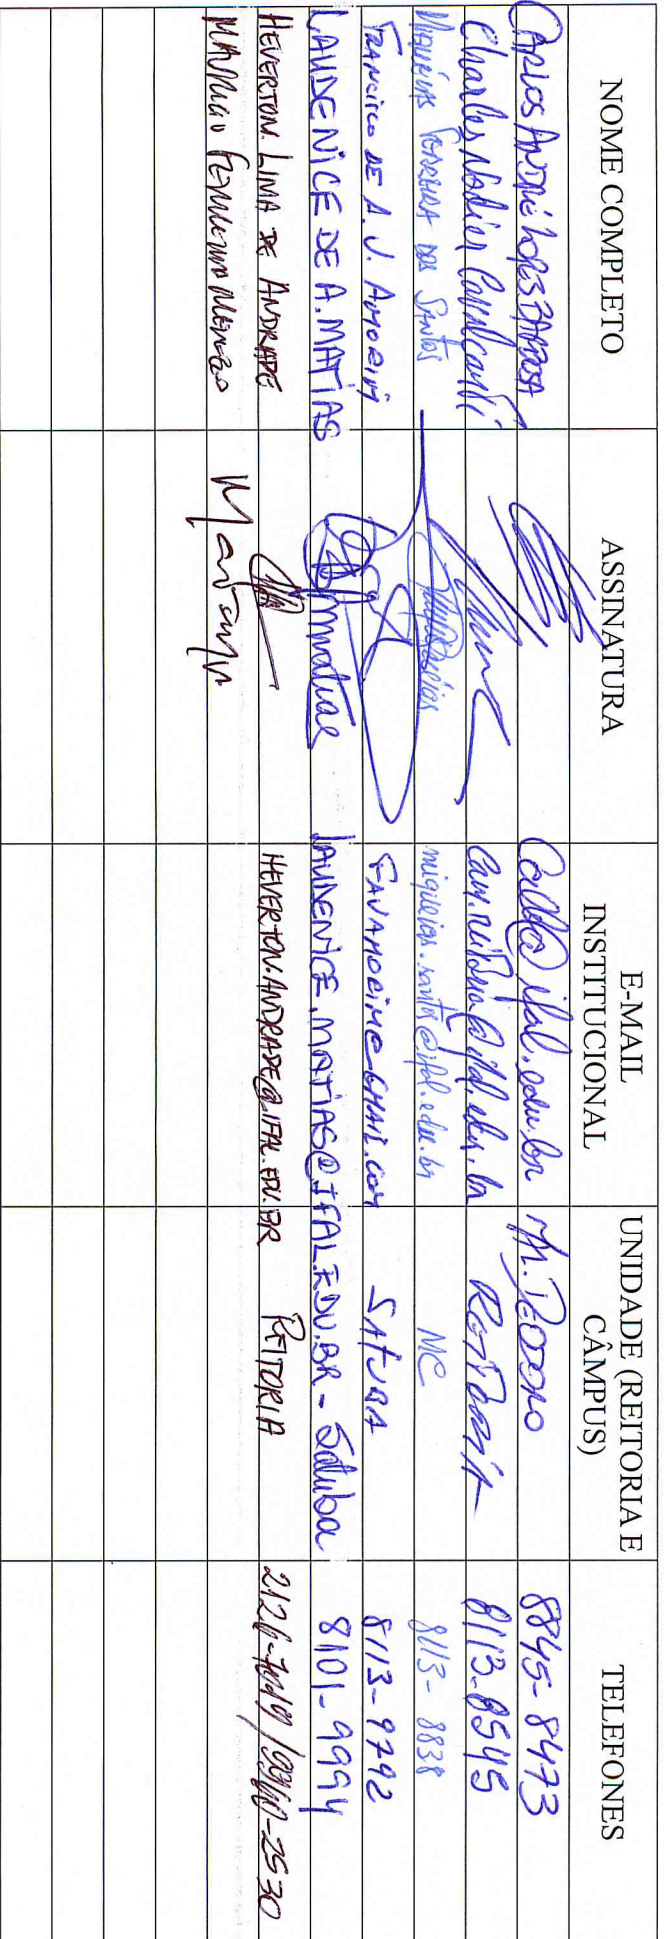 NOME COMPLETO ASSINATURA E-MAIL INSTITUCIONAL UNIDADE (REITORIA E CÂMPUS) TELEFONES
CARLOS ANDRÉ LOPES BARBOSA @ifal.edu.br M. DEODORO 8845-8473
Charles Nadier Cavalcanti @ifal.edu.br REITORIA 8113-8545
MIQUÉIAS FERREIRA DOS SANTOS miqueias.santos@ifal.edu.br MC 8113-8838
FRANCISCO DE A. V. AMORIM FAVAMORIM@GMAIL.COM SATUBA 8113-9792
LAUDENICE DE A. MATIAS LAUDENICE.MATIAS@IFAL.EDU.BR - Satuba 8101-9994
HEVERTON LIMA DE ANDRADE HEVERTON.ANDRADE@IFAL.EDU.BR REITORIA
MAURICIO